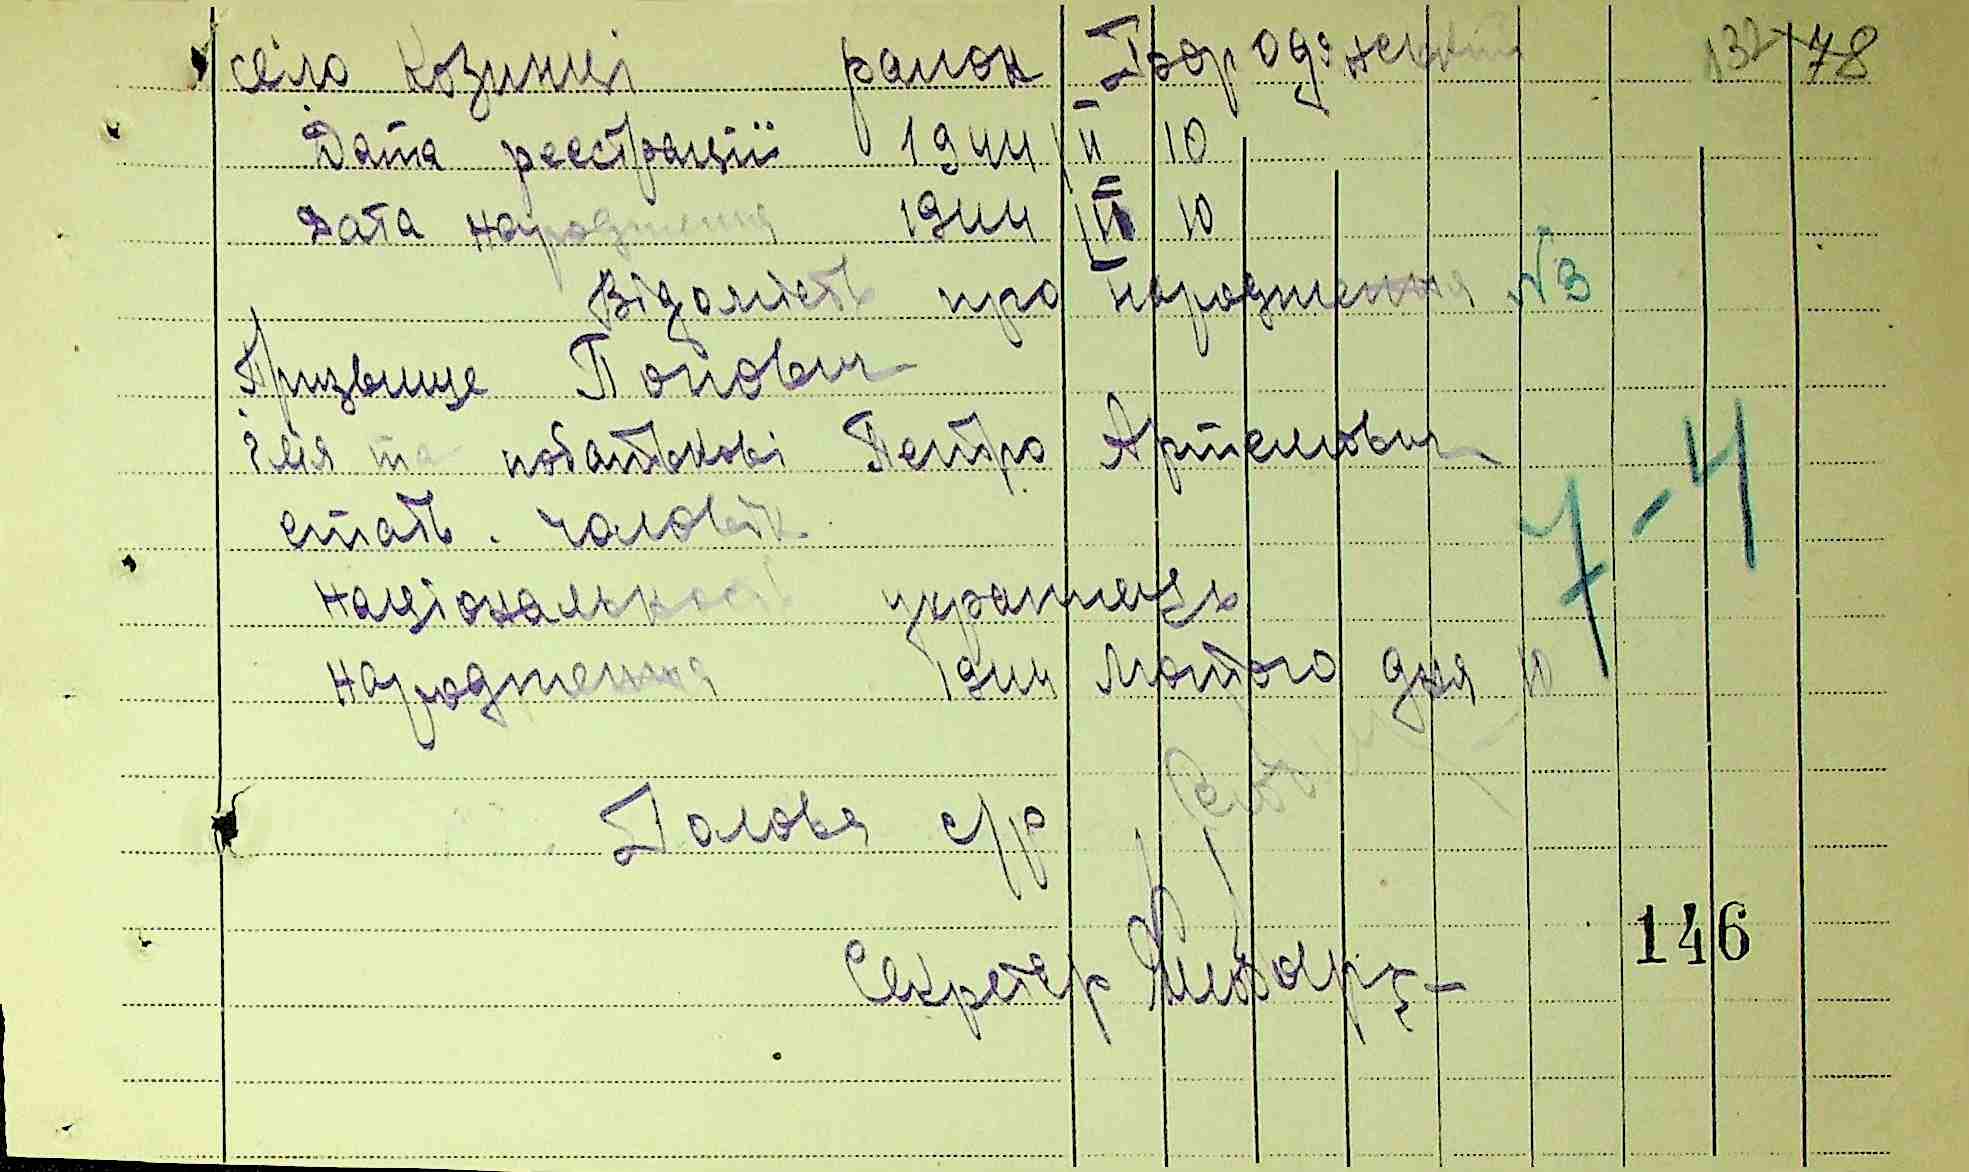 село Козинці район Бородянський 132 78
Дата реєстрації 1944 II 10
Дата народження 1944 II 10
Відомість про народження №3
Призвище Попович
імя та побатькові Петро Артемович
стать. чоловік
національность українець
народження 1944 Лютого дня 10
7-4
Голова с/р
Секретар
146